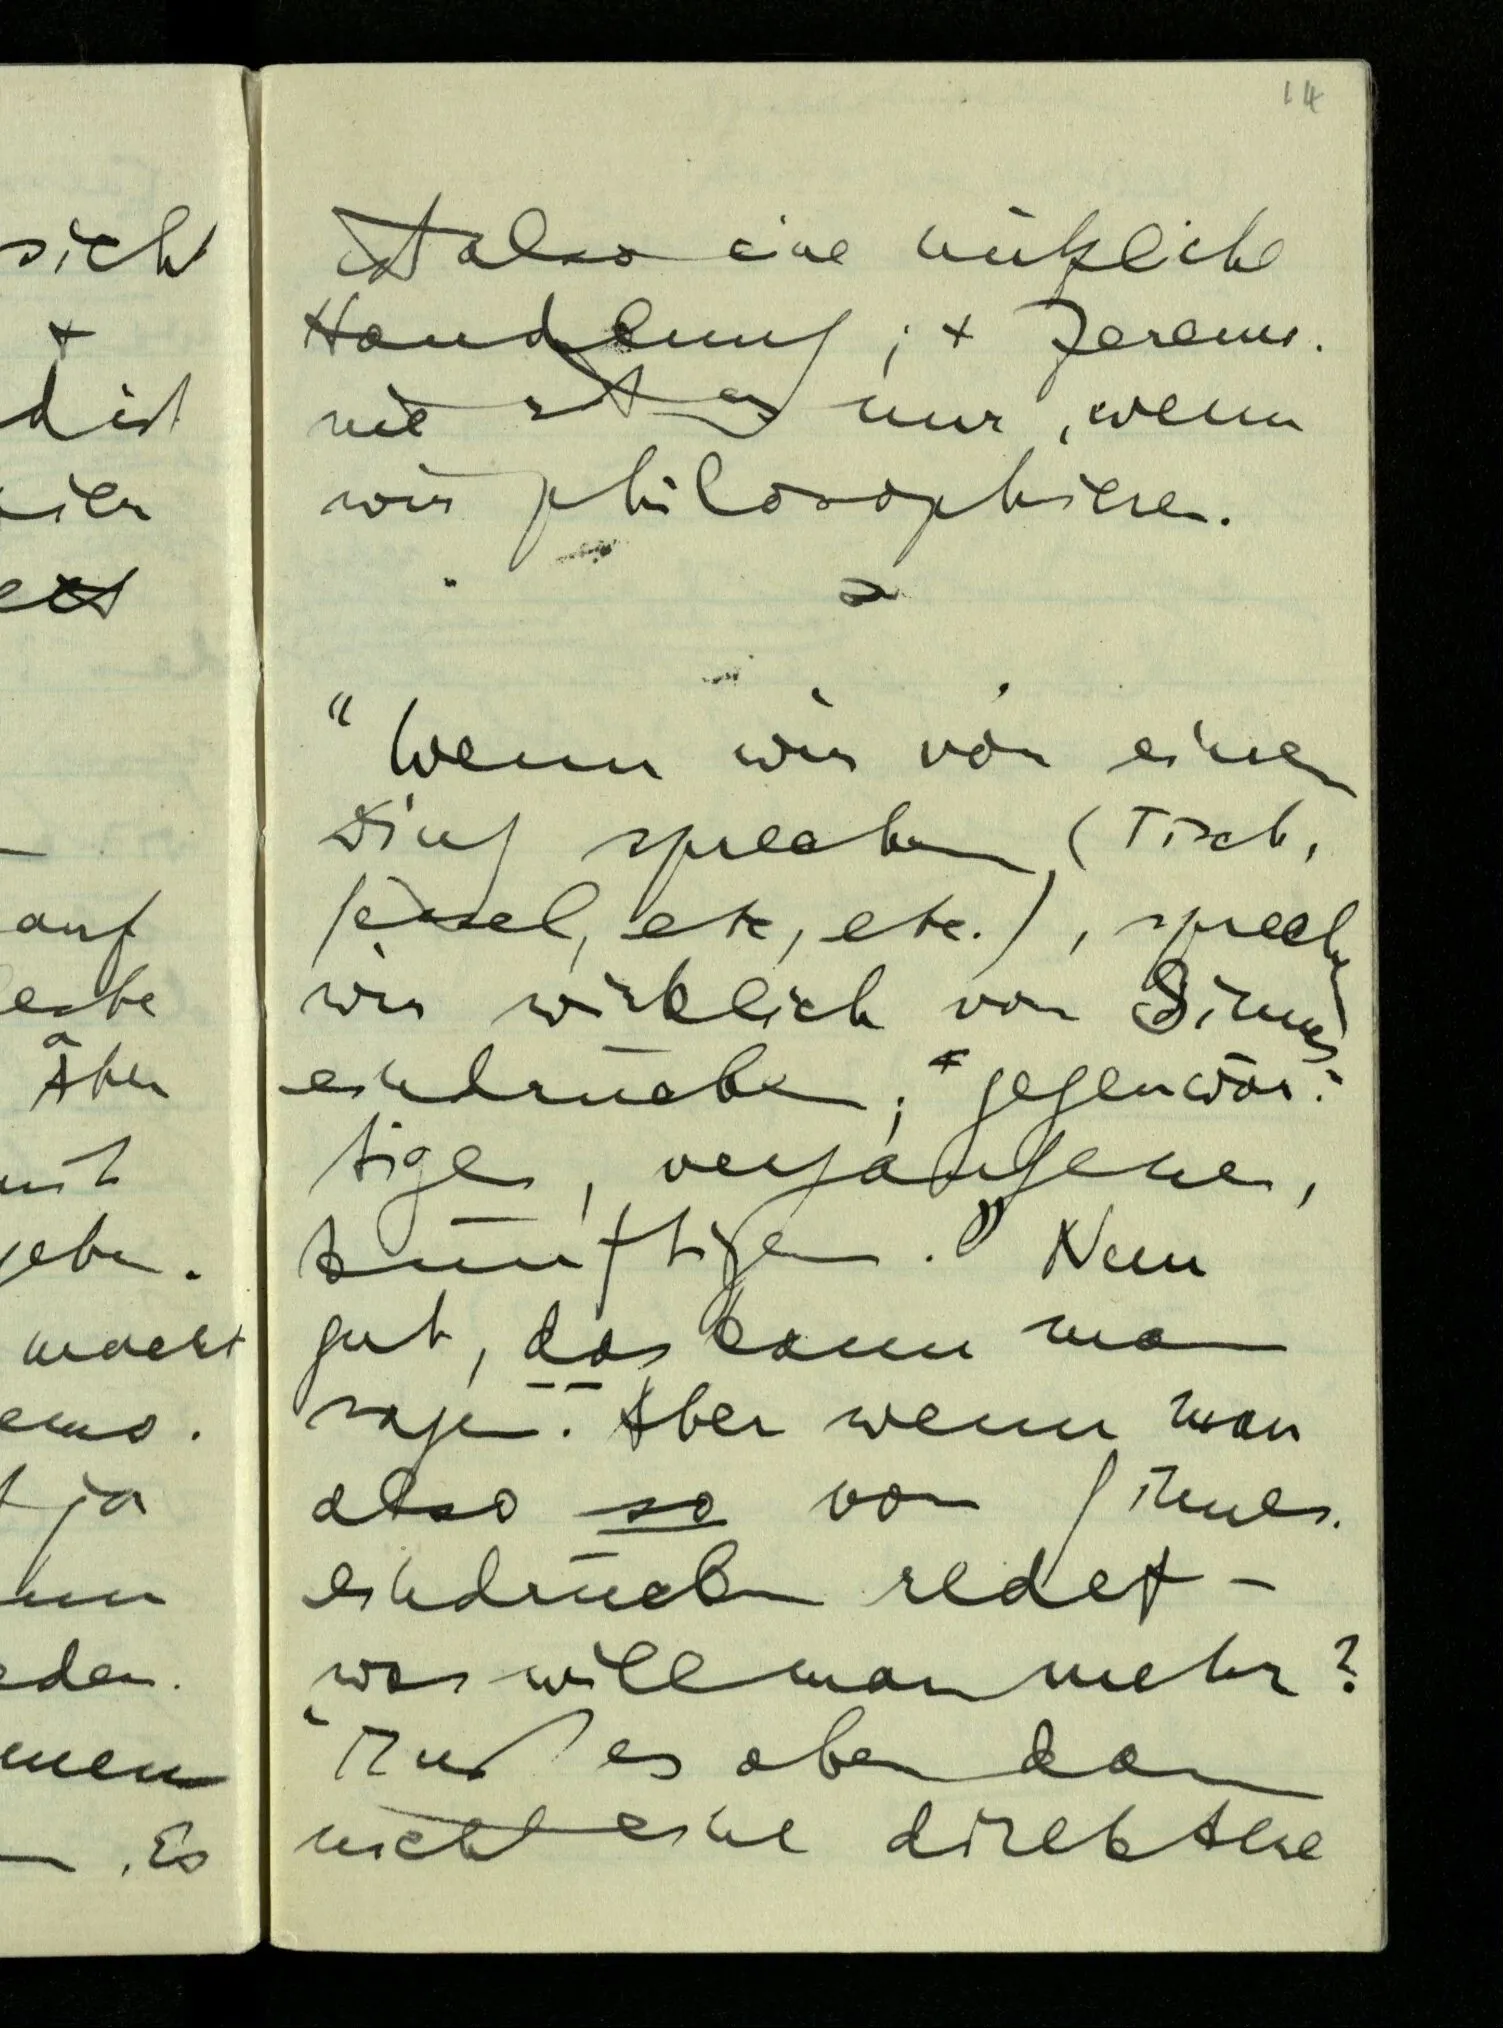 14
sich
+
d ist
auf
Aber
geben.
macht
ja
Es
ist also eine nützliche
Handlung ; + Zeremo-
nie ist es nur, wenn
wir philosophieren.
"Wenn wir von einem
Ding sprechen (Tisch,
Sessel, etc, etc.), sprechen
wir wirklich von Sinnes
eindrücken; gegenwär-
tigen, vergangenen,
künftigen." Nun
gut, das kann man
sagen. Aber wenn man
also so von Sinnes-
eindrücken redet –
was will man mehr?
"Muß es aber dann
nicht eine direktere